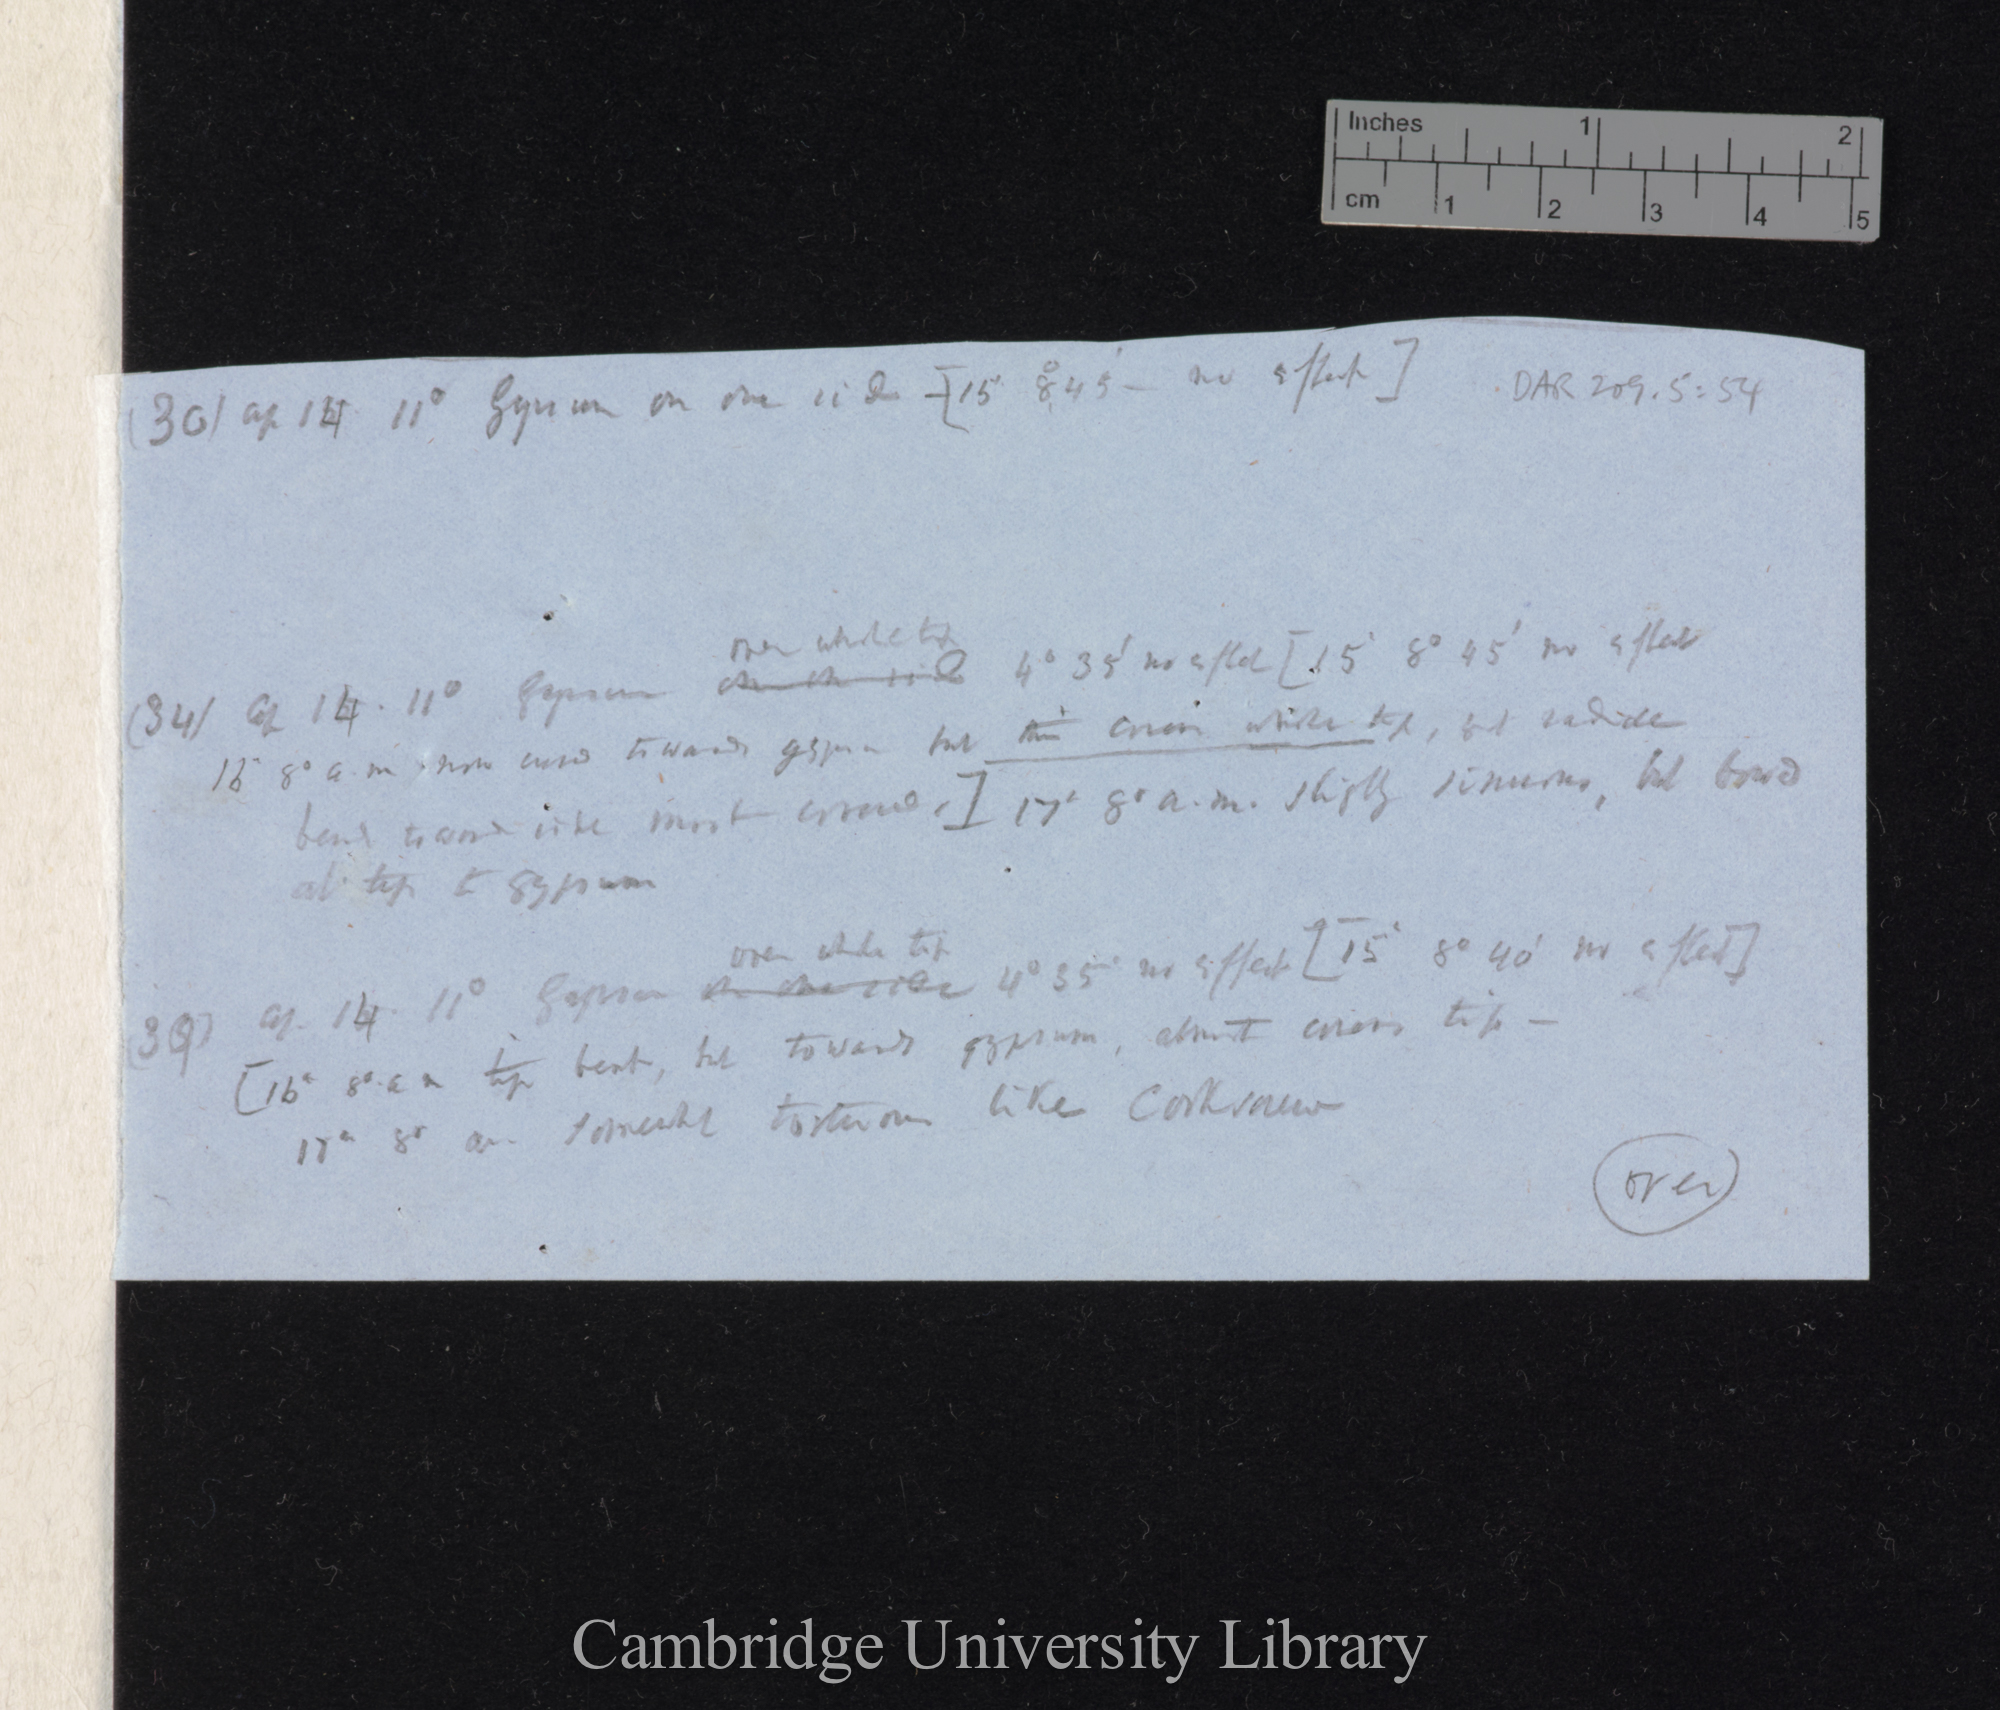 Inches 1 2
cm 1 2 3 4 5
(30) Ap 14 11° Gypsum on one side [15 8° 45' — no effect]
DAR 209.5:54
over whole tip
(34) Ap 14. 11° Gypsum on one side 4° 35' no effect [15 8° 45' no effect
16 8° a.m now towards gypsum but this covers whole tip, but radicle
bend toward side most covered.] 17th 8° a.m. slightly sinuous, but bowed
at tip to gypsum
over whole tip
Ap. 14 11° Gypsum on one side 4° 35' no effect [15 8° 40' no effect]
[16th 8° a m tip bent, but towards gypsum, almost covers tip —
17th 8° am somewhat tortuous like Corkscrew
over
Cambridge University Library